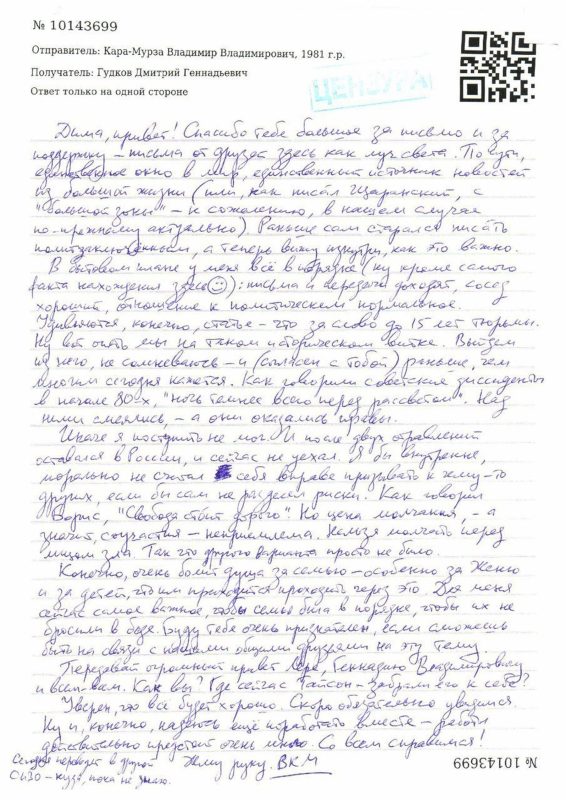 № 10143699
Отправитель: Кара-Мурза Владимир Владимирович, 1981 г.р.
Получатель: Гудков Дмитрий Геннадьевич
Ответ только на одной стороне
ЦЕНЗУРА
Дима, привет! Спасибо тебе большое за письмо и за
поддержку – письма от друзей здесь как луч света. По сути,
единственное окно в мир, единственный источник новостей
из большой жизни (или, как писал Щаранский, с
"большой зоны" – к сожалению, в нашем случае
по-прежнему актуально) Раньше сам старался писать
политзаключённым, а теперь вижу изнутри, как это важно.
В бытовом плане у меня всё в порядке (ну кроме самого
факта нахождения здесь☺): письма и передачи доходят, сосед
хороший, отношение к политическим нормальное.
Удивляются, конечно, статье – что за слово до 15 лет тюрьмы.
Ну вот опять мы на таком историческом витке. Выйдем
из него, не сомневаюсь – и (согласен с тобой) раньше, чем
многим сегодня кажется. Как говорили советские диссиденты
в начале 80-х, "ночь темнее всего перед рассветом". Над
ними смеялись, – а они оказались правы.
Иначе я поступить не мог. И после двух отравлений
оставался в России, и сейчас не уехал. Я бы внутренне,
морально не считал себя вправе призывать к чему-то
других, если бы сам не разделял риски. Как говорил
Борис, "Свобода стоит дорого". Но цена молчания, – а
значит, соучастия – неприемлема. Нельзя молчать перед
лицом зла. Так что другого варианта просто не было.
Конечно, очень болит душа за семью – особенно за Женю
и за детей, что им приходится проходить через это. Для меня
сейчас самое важное, чтобы семья была в порядке, чтобы их не
бросили в беде. Буду тебе очень признателен, если сможешь
быть на связи с нашими общими друзьями на эту тему.
Передавай огромный привет Лере, Геннадию Владимировичу
и всем-вам. Как вы? Где сейчас Тайсон – забрали его к себе?
Уверен, что всё будет хорошо. Скоро обязательно увидимся.
Ну и, конечно, надеюсь ещё поработать вместе – работы
действительно предстоит очень много. Со всем справимся!
Жму руку. ВКМ
Сегодня переводят в другой
СИЗО – куда, пока не знаю.
№ 10143699